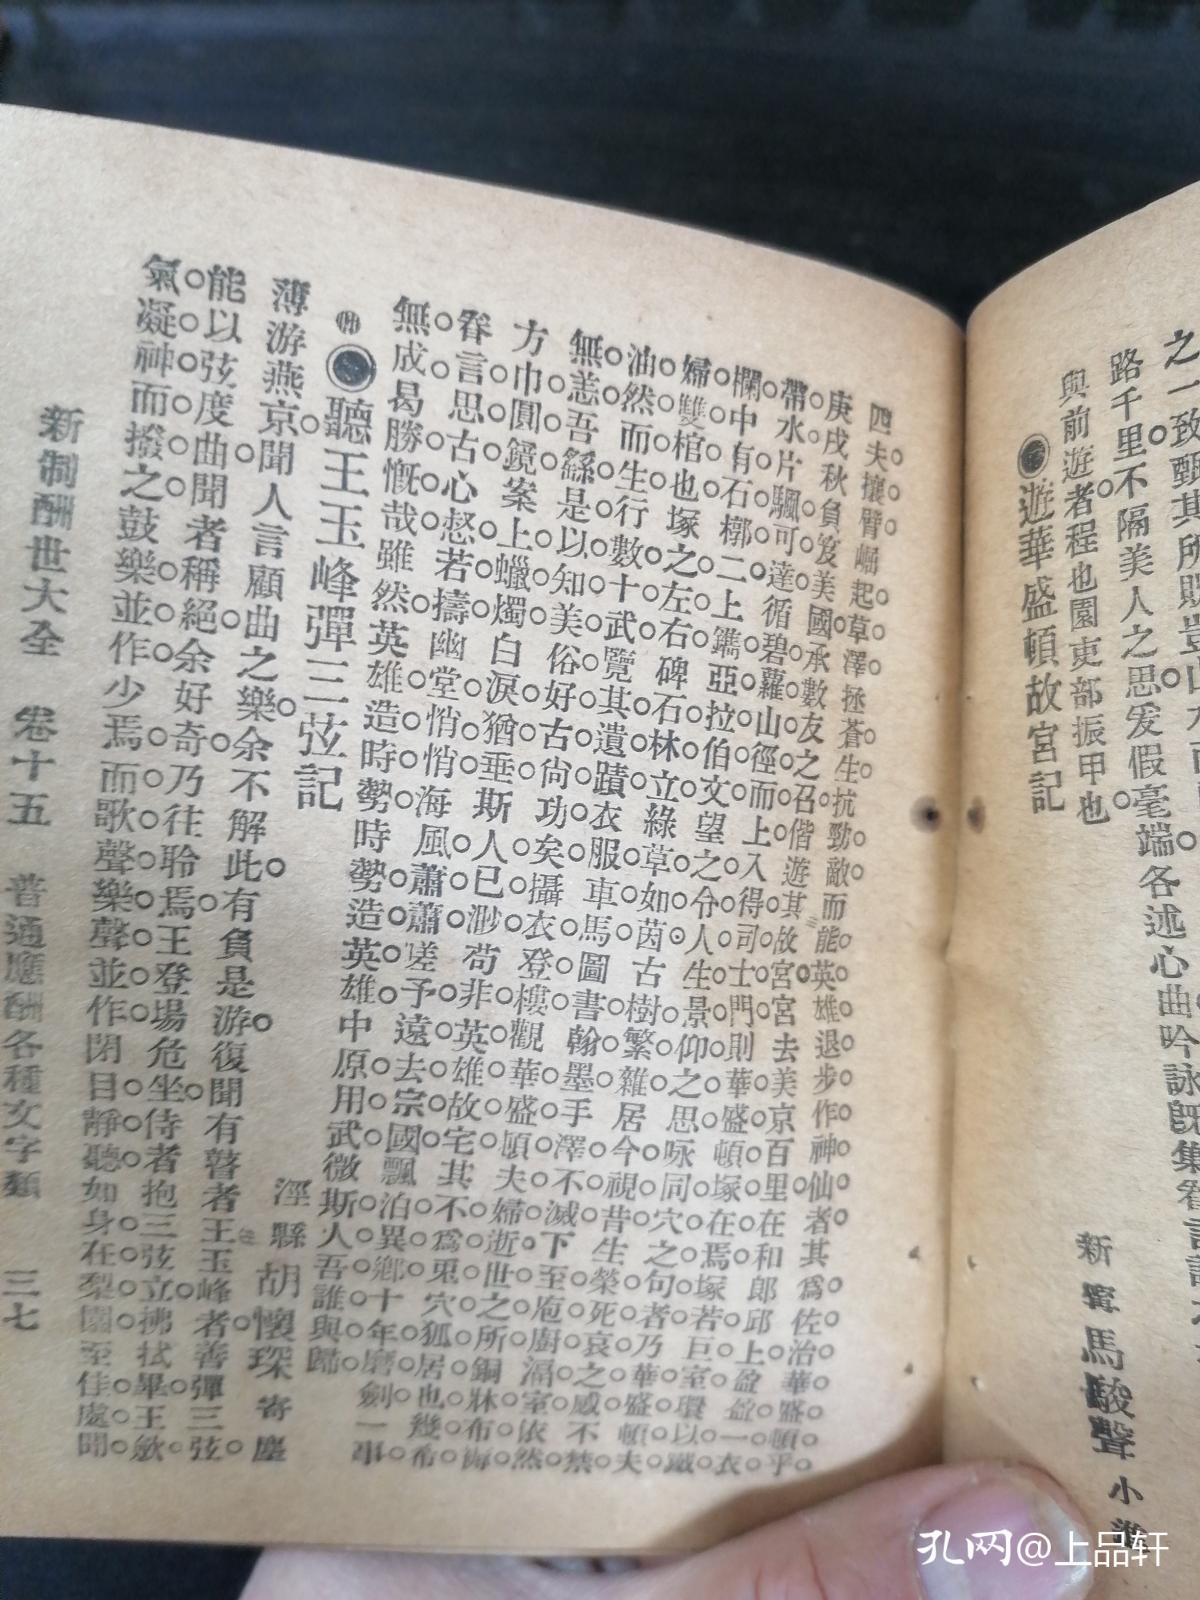 之一致甄其所
路千里不隔美人之思爰假毫端各述心曲吟詠旣集
與前遊者程也園吏部振甲也
遊華盛頓故宮記
新甯馬駿聲小進
四夫攘臂崛起草澤拯蒼生抗勁敵而能英雄退步作神仙者其為佐治華盛頓乎
庚戌秋負笈美國承數友之召偕遊其故宮宮去美京百里在和郎邱上盈盈一衣
帶水片颿可達循碧蘿山徑而上入得司士門則華盛頓塚在焉塚若巨室環以鐵
欄中有石槨二上鐫亞拉伯文望之令人生景仰之思咏同穴之句者乃華盛頓夫
婦雙棺也塚之左右碑石林立綠草如茵古樹繁雜居今視昔生榮死哀之感不禁
油然而生行數十武覽其遺蹟衣服車馬圖書翰墨手澤不滅下至庖廚湢室依然
無恙吾繇是以知美俗好古尙功矣攝衣登樓觀華盛頓夫婦逝世之所銅牀布
方巾圓鏡案上蠟燭白淚猶垂斯人已渺苟非英雄故宅其不為兎穴狐居也幾希
眷言思古心惄若擣幽堂悄悄海風蕭蕭嗟予遠去宗國飄泊異鄉十年磨劍一事
無成曷勝慨哉雖然英雄造時勢時勢造英雄中原用武微斯人吾誰與歸
聽王玉峰彈三弦記
涇縣胡懷琛寄塵
薄游燕京聞人言顧曲之樂余不解此有負是游復聞有瞽者王玉峰者善彈三弦
能以弦度曲聞者稱絕余好奇乃往聆焉王登場危坐侍者抱三弦立拂拭畢王斂
氣凝神而撥之鼓樂並作少焉而歌聲樂聲並作閉目靜聽如身在梨園至佳處聞
新制酬世大全 卷十五 普通應酬各種文字類 三七
孔网@上品轩